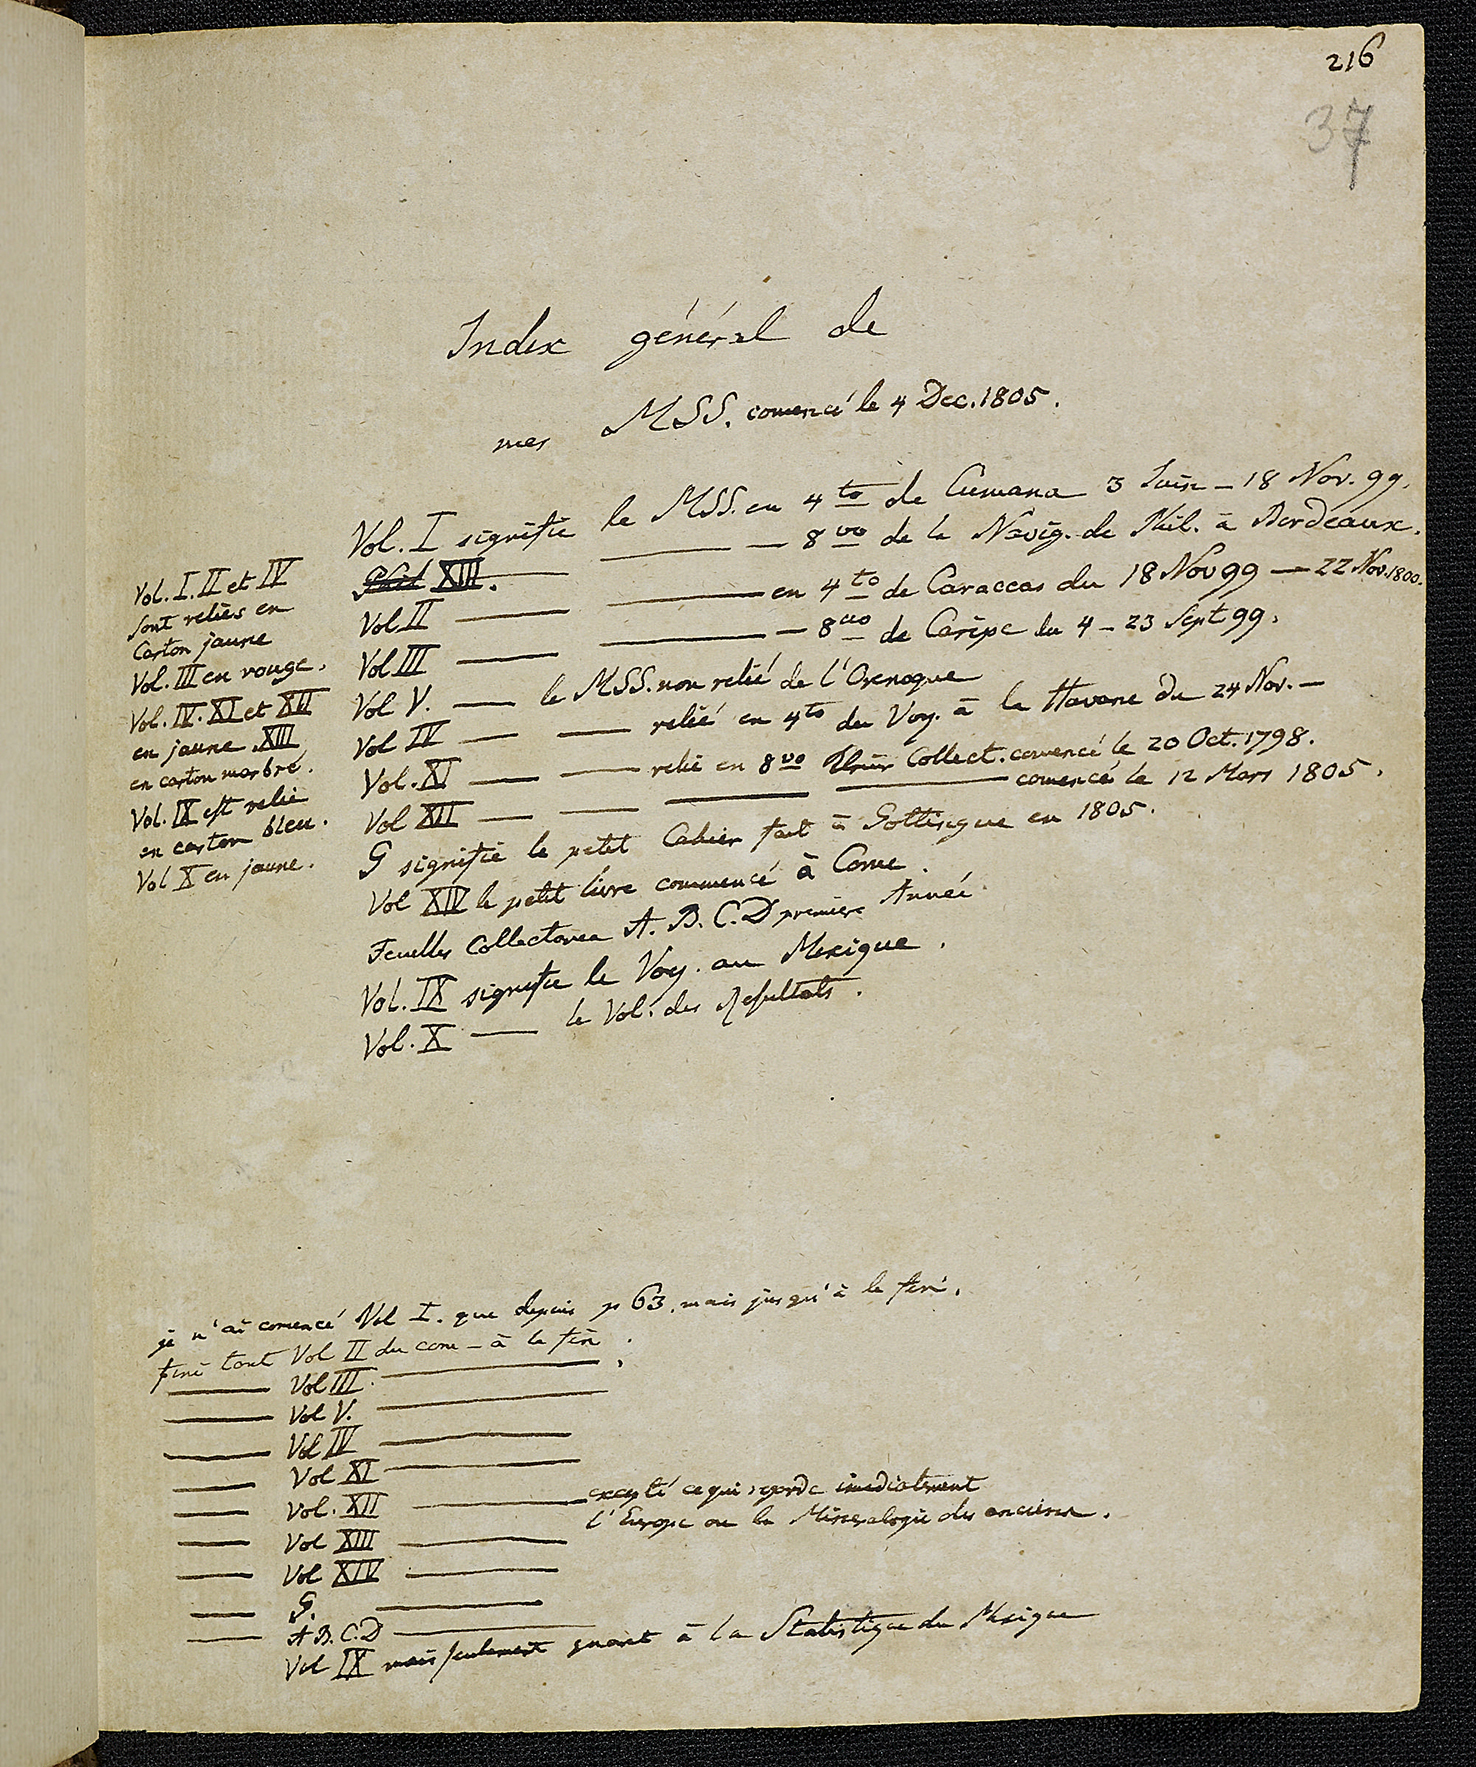 216
37
Index général de
mes MSS. comencé le 4 Dec. 1805.
Vol. I signifie le MSS. en 4to de Cumana 3 Juin – 18 Nov. 99.
XIII. — — 8vo de la Navig. de Phil. à Bordeaux.
Vol II — — en 4to de Caraccas du 18 Nov 99 — 22 Nov. 1800.
Vol III — — 8vo de Caripe du 4 – 23 Sept 99.
Vol V. — le MSS. non relié de l'Orenoque
Vol IV — — relié en 4to du Voy. à la Havane du 24 Nov. —
Vol. XI — — relié en 8vo Collect. comencé le 20 Oct. 1798.
Vol XII — — — — comencé le 12 Mars 1805.
G signifie le petit Cahier fait à Gottingue en 1805.
Vol XIV le petit livre commencé à Come.
Feuilles Collectanea A. B. C. D premiere Année
Vol. IX signifie le Voy. au Mexique.
Vol. X — le Vol. des Resultats.
Vol. I. II et IV
sont reliés en
Carton jaune
Vol. III en rouge.
Vol. IV. XI et XII
en jaune XIII
en carton marbré.
Vol. IX est relié
en carton bleu.
Vol X en jaune.
je n'ai comencé Vol I. que depuis p 63. mais jusqu'à la fin.
fini tout Vol II du com – à la fin.
— Vol III. —
— Vol V. —
— Vol IV —
— Vol XI —
— Vol. XII — excepté ce qui regarde imediatement
l'Europe ou la Mineralogie des anciens.
— Vol XIII —
— Vol XIV —
— G. —
— A B. C. D —
Vol IX mais seulement quant à la Statistique du Mexique